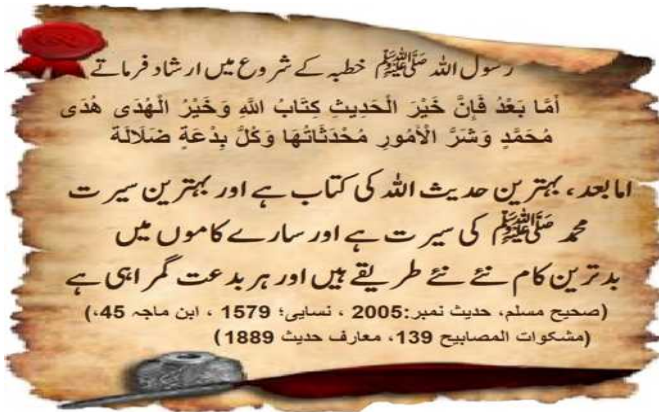 رسول اللہ ﷺ خطبہ کے شروع میں ارشاد فرماتے
أَمَّا بَعْدُ فَإِنَّ خَيْرَ الْحَدِيثِ كِتَابُ اللَّهِ وَخَيْرُ الْهُدَى هُدَى
مُحَمَّدٍ وَشَرُّ الْأُمُورِ مُحْدَثَاتُهَا وَكُلُّ بِدْعَةٍ ضَلَالَة
اما بعد، بہترین حدیث اللہ کی کتاب ہے اور بہترین سیرت
محمد ﷺ کی سیرت ہے اور سارے کاموں میں
بدترین کام نئے نئے طریقے ہیں اور ہر بدعت گمراہی ہے
(صحیح مسلم، حدیث نمبر:2005 ، نسایی؛ 1579 ، ابن ماجہ 45،)
(مشکوات المصابیح 139، معارف حدیث 1889)